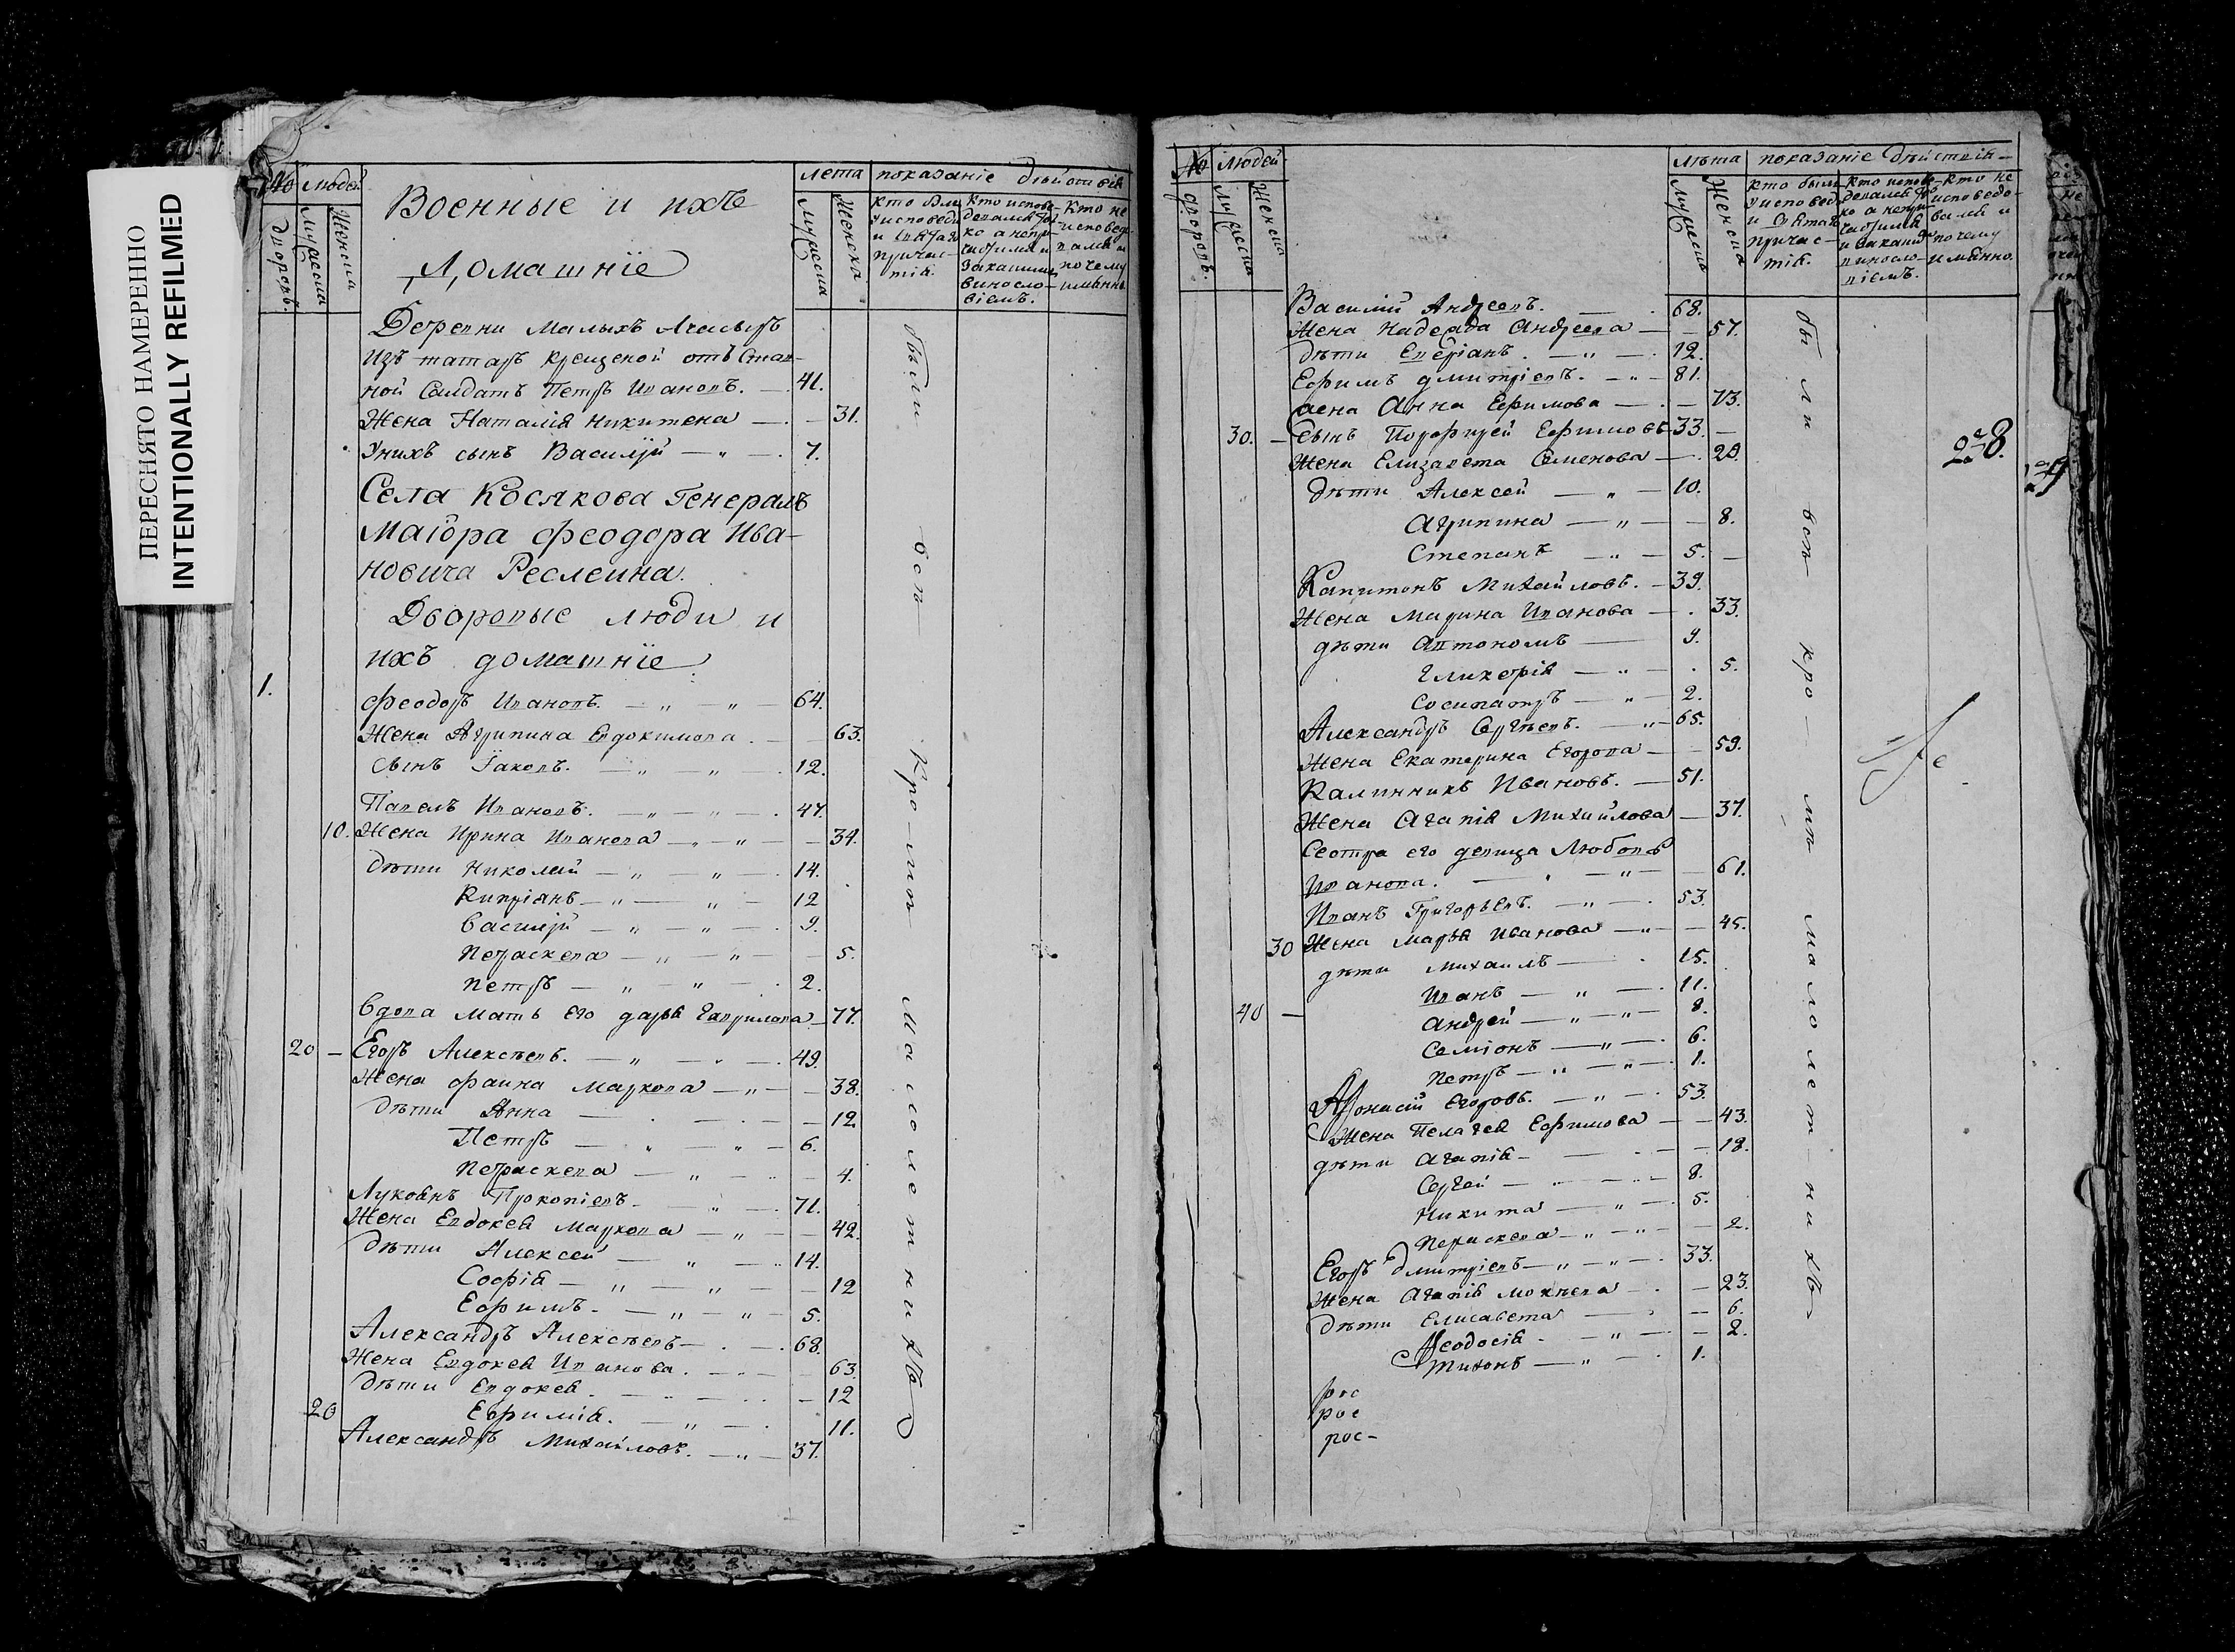 ПЕРЕСНЯТО НАМЕРЕННО
INTENTIONALLY REFILMED
№ людей
дворовъ. мужеска женска
Военные и ихъ
Домашнïе
лета показанïе действïя
мужеска женска
кто был у исповеди и святаго причастïя.
кто исповедался только а не причастился и за каким винословïемъ.
кто не исповедовался и почему имянно.
Деревни Малыхъ
изъ татаръ крещеной отъставной Салдатъ Петръ Ивановъ. 41.
Жена Наталïя Никитена 31.
У нихъ сынъ Василïй 7.
Села Косякова Генералъ
Маïора Феодора Ива-
новича Реслеина.
Дворовые люди и
ихъ домашнïе
1.
Феодоръ Ивановъ. 64.
Жена Агрипина Евдокимова. 63.
сынъ Їаковъ. 12.
Павелъ Ивановъ. 47.
10. Жена Ирина Иванова 34.
дѣти Николай 14.
Кипрïянъ 12
Василïй 9.
Параскева 5.
Петръ 2.
Вдова мать его дарья Гаврилова 77.
20 Егоръ Алексѣевъ. 49.
Жена Фаина Маркова 38.
дѣти Анна 12.
Петръ 6.
Параскева 4.
Лукоянъ Прокопïевъ 71.
Жена Евдокея Маркова 42.
дѣти Алексей 14.
Софïя 12
Ефимъ. 5.
Александръ Алексѣевъ 68.
Жена Евдокея Иванова. 63.
дѣти Евдокея. 12
20 Ефимïя. 11.
Александръ Михайловъ. 37.
были все Кроме малолетниковъ
№ людей
дворовъ. мужеска женска
лѣта показанïе дѣйствïя
мужеска женска
кто были у исповеди и святаго причастïя.
кто исповедался только а не причастился и за каким винословïемъ.
кто не исповедовался и почему имянно.
Василïй Андреевъ. 68.
Жена Надежда Андреева 57.
дѣти Еверïанъ. 12.
Ефимъ дмитрïевъ. 81.
жена Анна Ефимова 73.
30. сынъ Порфирей Ефимовъ 33.
Жена Елизавета Семенова 29.
дѣти Алексей 10.
Агрипина 8.
Степанъ 5.
Капитонъ Михайловъ. 39.
Жена Марина Иванова 33.
дѣти Автономъ 9.
Гликерïя 5.
Сосипатръ 2.
Александръ Сергѣевъ. 65.
Жена Екатерина Егорова 59.
Калинникъ Ивановъ. 51.
Жена Агапïя Михайлова 37.
Сестра его девица Любовь
Иванова. 61.
Иванъ Григорьевъ. 53.
30 Жена Марья Иванова 45.
дѣти Михаилъ 15.
Иванъ 11.
40 Андрей 8.
Семïонъ 6.
Петръ 1.
Афонасïй Егоровъ. 53.
Жена Пелагея Ефимова 43.
дѣти Агапïя 18.
Сергей 8.
Никита 5.
Параскева 2.
Егоръ дмитрïевъ 33.
Жена Агапïя Мокѣева 23.
дѣти Елисавета 6.
Феодосïя 2.
Тихонъ 1.
рос
рос
рос-
были все кроме малолетниковъ
228.